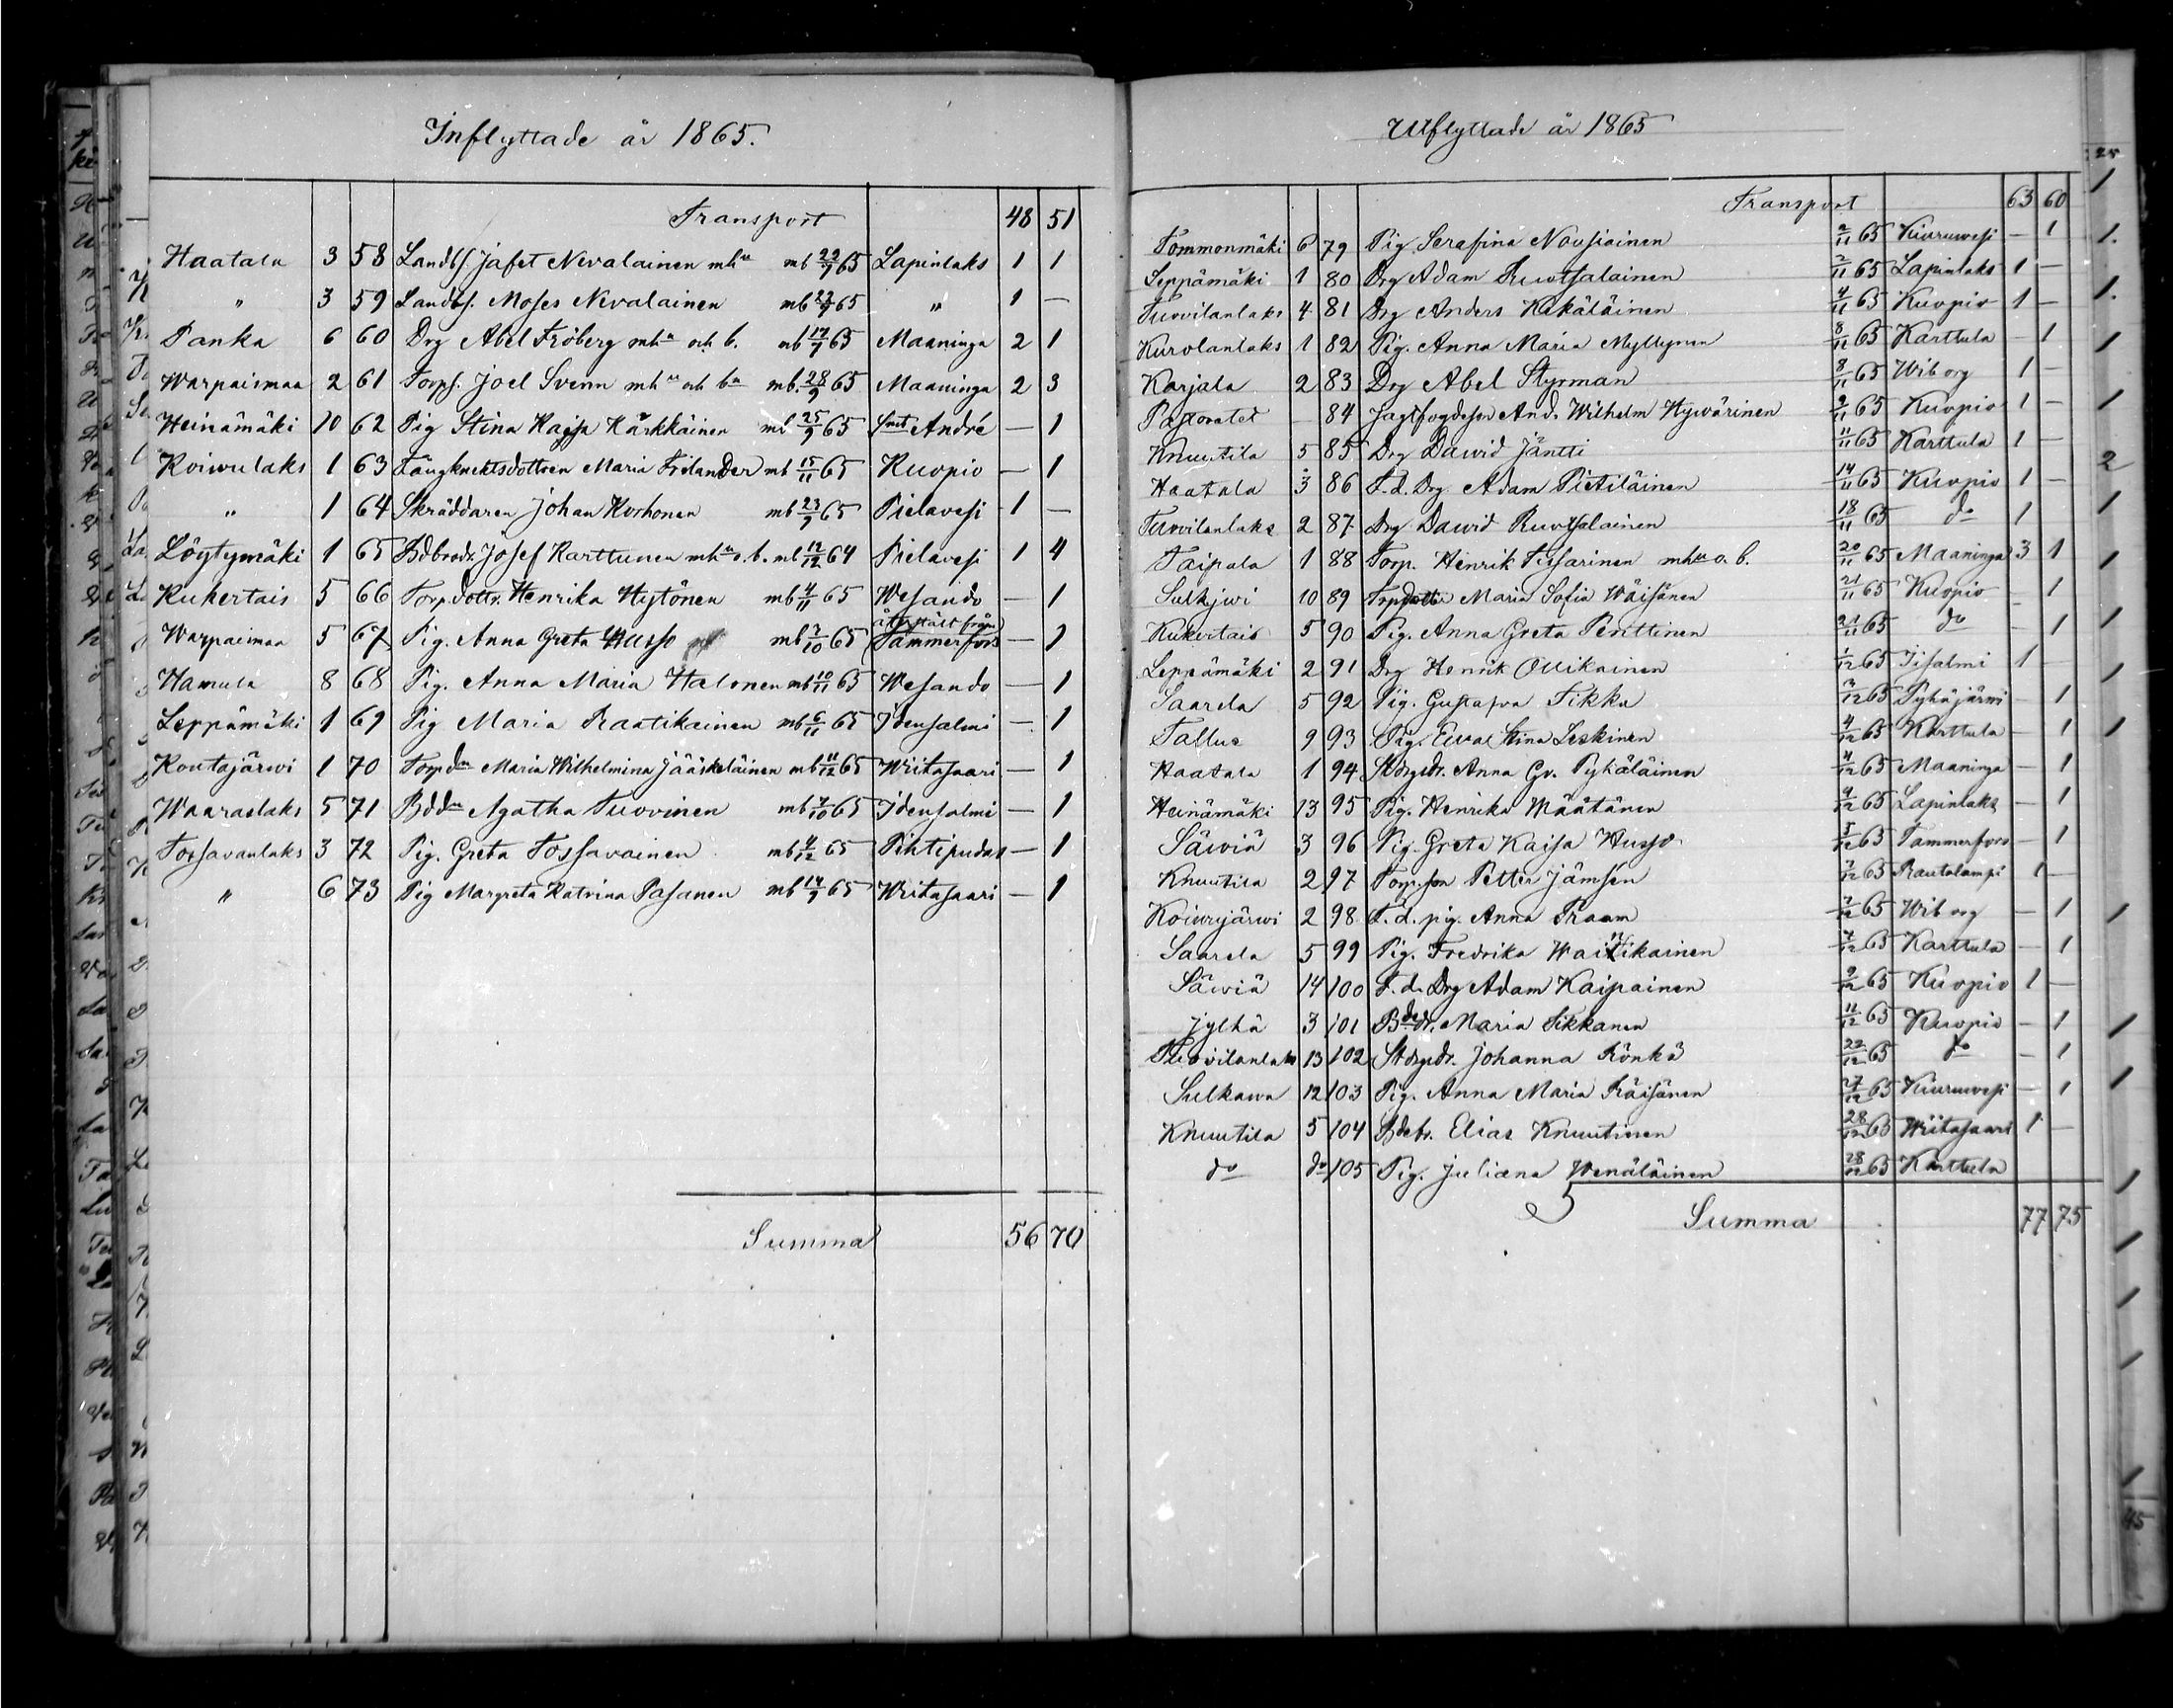 Inflyttade år 1865.
Transport 48 51
Haatala 3 58 Landbs. Jafet Nevalainen mhu mb 22/9 65 Lapinlaks 1 1
" 3 59 Landbs. Moses Nevalainen mb 22/9 65 " 1 —
Panka 6 60 Drg Abel Fröberg mhu och b. mb 17/9 65 Maaninga 2 1
Warpaismaa 2 61 Torps. Joel Svenn mhu och bn mb. 28/9 65 Maaninga 2 3
Heinämäki 10 62 Pig Stina Kajsa Kärkkäinen mb 25/9 65 Smts André — 1
Koiwulaks 1 63 Långknektsdottren Maria Frilander mb 15/11 65 Kuopio — 1
" 1 64 Skräddaren Johan Korhonen mb 23/9 65 Pielavesi 1 —
Löytymäki 1 65 Bdbrodr. Josef Karttunen mhu o. b. mb 12/12 64 Pielavesi 1 4
Kukertais 5 66 Torpdottr. Henrika Hytönen mb 4/11 65 Wesando — 1
Warpaismaa 5 67 Pig. Anna Greta Husso mb 7/10 65 återstält från Tammerfors — 1
Hamula 8 68 Pig. Anna Maria Halonen mb 10/11 65 Wesando — 1
Leppämäki 1 69 Pig Maria Raatikainen mb 6/11 65 Idensalmi — 1
Koutajärwi 1 70 Torpdn Maria Wilhelmina Jääskeläinen mb 11/12 65 Wiitasaari — 1
Waaraslaks 5 71 Bddn Agatha Tuovinen mb 7/10 65 Idensalmi — 1
Tossavanlaks 3 72 Pig. Greta Tossavainen mb 4/12 65 Pihtipudas — 1
" 6 73 Pig Margreta Katrina Pasanen mb 14/9 65 Wiitasaari — 1
Summa 56 70
Utflyttade år 1865
Transport 63 60
Tommonmäki 6 79 Pig Serafina Nousiainen 2/11 65 Kiuruwesi — 1
Leppämäki 1 80 Drg Adam Ruotsalainen 2/11 65 Lapinlaks 1 —
Tuovilanlaks 4 81 Drg Anders Kekäläinen 4/11 65 Kuopio 1 —
Kurolanlaks 1 82 Pig. Anna Maria Myllynen 8/11 65 Karttula — 1
Karjala 2 83 Drg Abel Styrman 8/11 65 Wiborg 1 —
Pastoratet — 84 Jagtfogdeson And. Wilhelm Hywärinen 9/11 65 Kuopio 1 —
Knuutila 5 85 Drg Dawid Jäntti 11/11 65 Karttula 1 —
Haatala 3 86 F. d. Drg Adam Pietiläinen 14/11 65 Kuopio 1 —
Tuovilanlaks 2 87 Drg Dawid Ruotsalainen 18/11 65 do 1
Taipale 1 88 Torp. Henrik Tissarinen mhu o. b. 20/11 65 Maaninga 3 1
Sulkjwi 10 89 Torpdottr Maria Sofia Wäisänen 21/11 65 Kuopio — 1
Kukertais 5 90 Pig. Anna Greta Penttinen 21/11 65 do — 1
Leppämäki 2 91 Drg Henrik Ollikainen 1/12 65 Iisalmi 1 —
Saarela 5 92 Pig. Gustafva Tikka 3/12 65 Pyhäjärwi — 1
Tallus 9 93 Pig. Ewa Stina Leskinen 4/12 65 Karttula — 1
Haatala 1 94 Stdrgsdr. Anna Gr. Pykäläinen 4/12 65 Maaninga — 1
Heinämäki 13 95 Pig. Henrika Määtänen 4/12 65 Lapinlaks — 1
Säwiä 3 96 Pig. Greta Kaisa Husso 5/12 65 Tammerfors — 1
Knuutila 2 97 Torpson Petter Jämsen 7/12 65 Rautalampi 1 —
Koiwujärwi 2 98 F. d. pig. Anna Fraam 7/12 65 Wiborg — 1
Saarela 5 99 Pig. Fredrika Waitikainen 7/12 65 Karttula — 1
Säwiä 14 100 F. d. Drg Adam Kaipainen 9/12 65 Kuopio 1 —
Jylhä 3 101 Bdedr. Maria Sikkanen 11/12 65 Kuopio — 1
Tuovilanlaks 13 102 Stdrgsdr. Johanna Rönkä 22/12 65 do — 1
Sulkawa 12 103 Pig. Anna Maria Räisänen 27/12 65 Kiuruwesi — 1
Knuutila 5 104 Bdebr. Elias Knuutinen 28/12 65 Wiitasaari 1 —
do do 105 Pig. Juliana Wenäläinen 28/12 65 Karttula
Summa 77 75